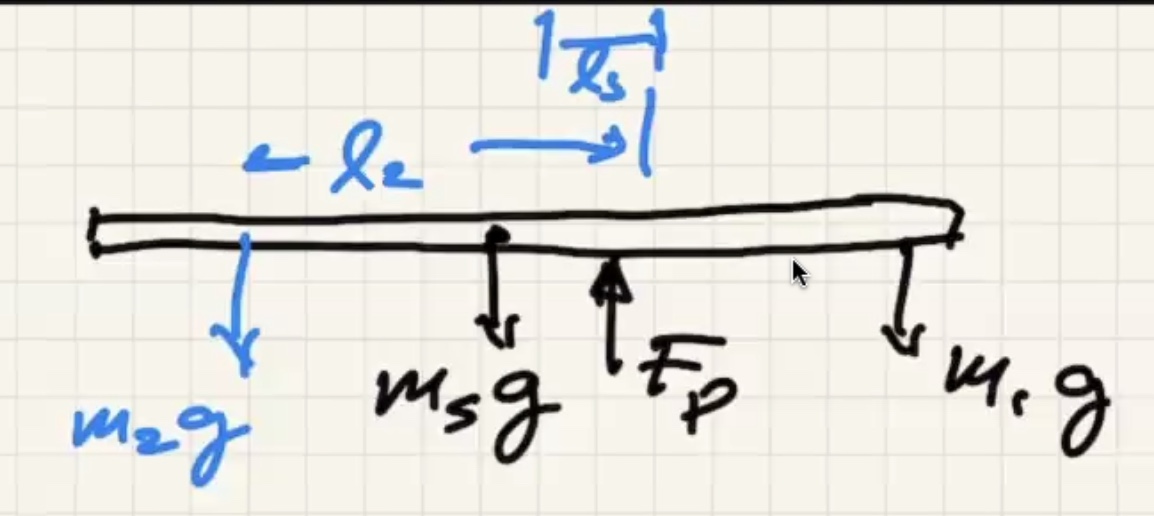 ℓs
ℓ2
m2g
msg
Fp
m1g